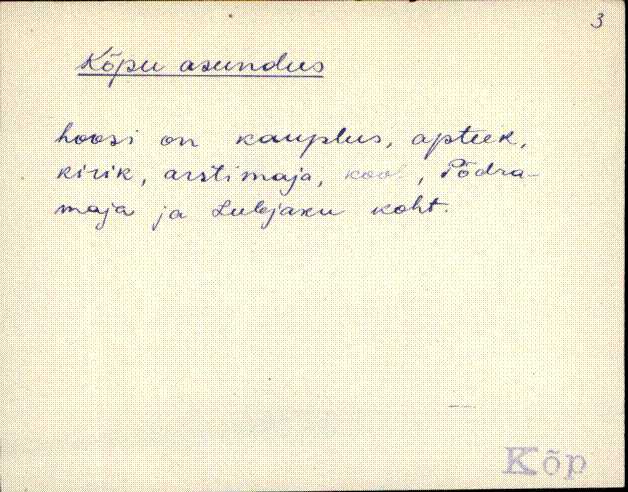 3
Kõpu asundus
hoosi on kauplus, apteek,
kirik, arstimaja, kool, Põdra-
maja ja Lubjaxu koht.
Kõp